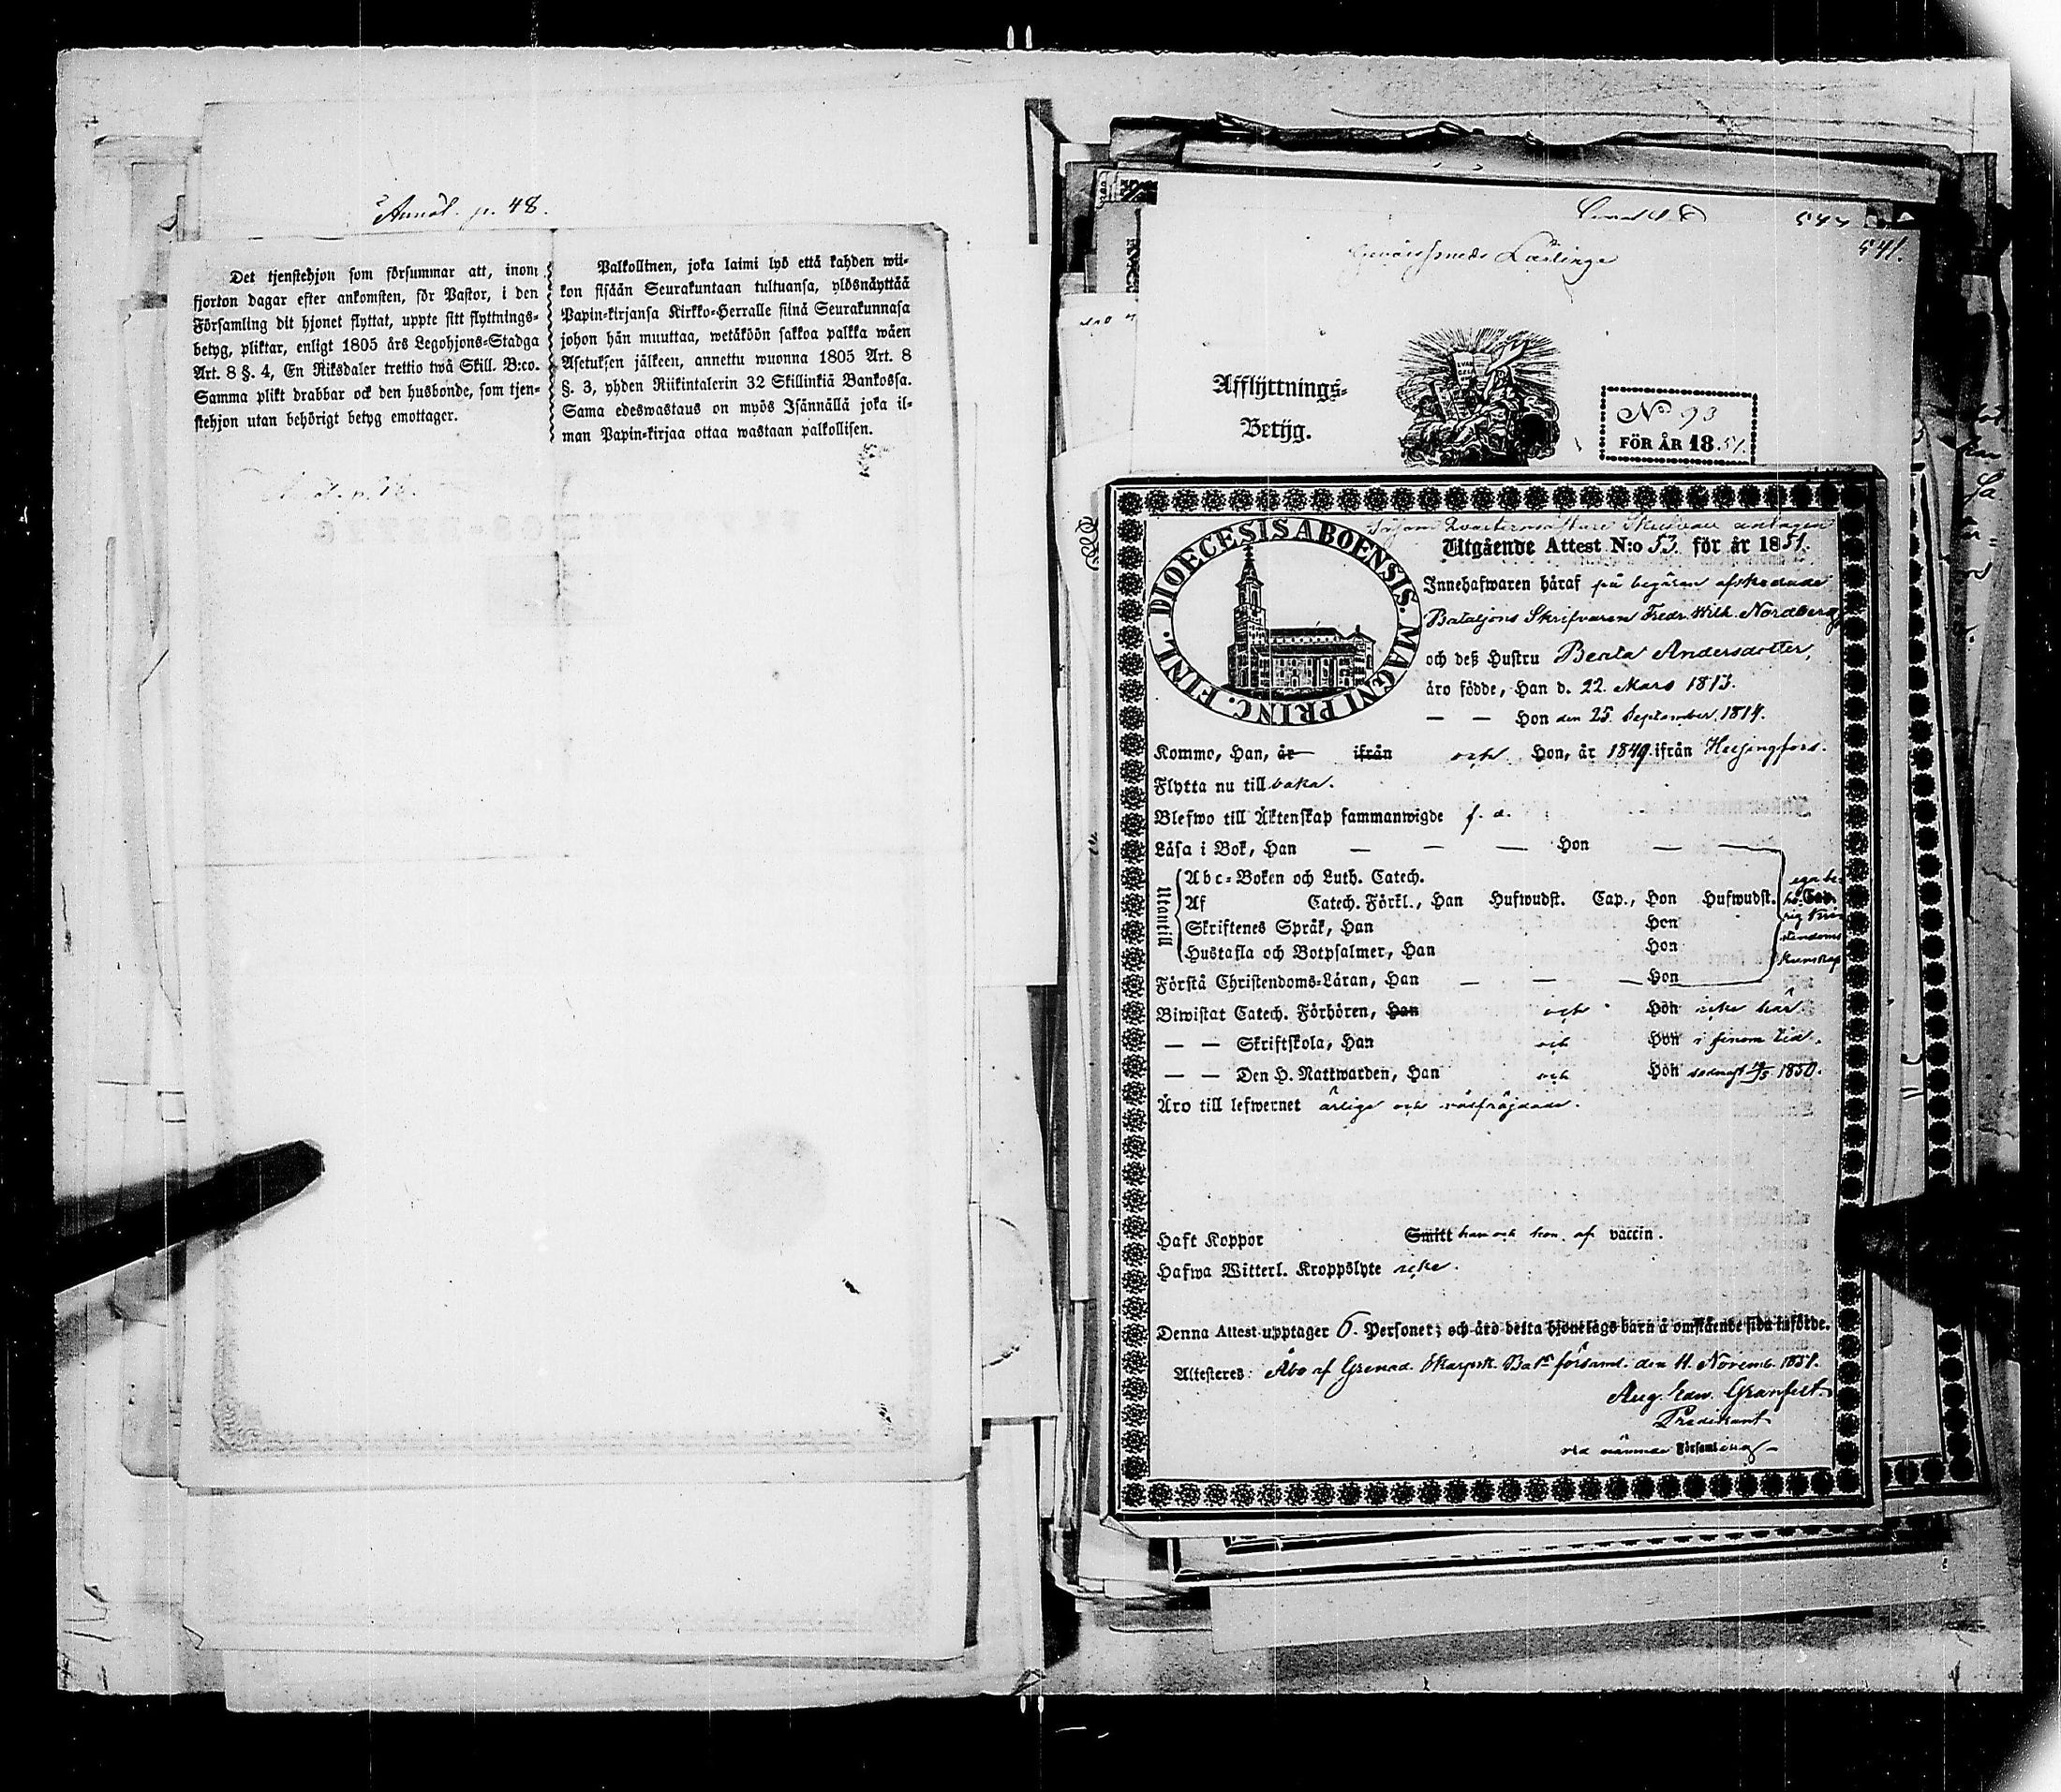 Anmäl. p. 48.
Det tjenstehjon som försummar att, inom
fjorton dagar efter ankomsten, för Pastor, i den
Församling dit hjonet flyttat, uppte sitt flyttnings-
betyg, pliktar, enligt 1805 års Legohjons-Stadga
Art. 8 §. 4, En Riksdaler trettio twå Skill. B:co.
Samma plikt drabbar ock den husbonde, som tjen-
stehjon utan behörigt betyg emottager.
Palkollinen, joka laimi lyö että kahden wii-
kon sisään Seurakuntaan tultuansa, ylösnäyttää
Papin-kirjansa Kirkko-Herralle siinä Seurakunnasa
johon hän muuttaa, wetäköön sakkoa palkka wäen
Asetuksen jälkeen, annettu wuonna 1805 Art. 8
§. 3, yhden Riikintalerin 32 Skillinkiä Bankossa.
Sama edeswastaus on myös Isännällä joka il-
man Papin-kirjaa ottaa wastaan palkollisen.
541.
Gevärssmeds Lärlinge
Afflyttnings-
Betyg.
No 93
FÖR ÅR 1851.
DIOECESIS ABOENSIS. MAGNI PRINC. FINL.
såsom Qvartermästare Skrifvare antagen
Utgående Attest N:o 53. för år 1851.
Innehafwaren håraf på begäran afskedade
Bataljons Skrifvaren Fredr. Wilh. Nordberg
och deß Hustru Beata Andersdotter,
äro födde, Han d. 22. Mars 1813.
— — Hon den 25. September 1814.
Kommo, Han, år ifrån och Hon, år 1849. ifrån Helsingfors.
Flytta nu till baka.
Blefwo till Äktenskap sammanwigde f. d.
Läsa i Bok, Han — — — Hon — —
Utantill
Abc-Boken och Luth. Catech.
Af Catech. Förkl., Han Hufwudst. Cap., Hon Hufwudst. Cap.
Skriftenes Språk, Han Hon
Hustafla och Botpsalmer, Han Hon
ega be-
hö-
rig kri-
stendoms
kunskap
Förstå Christendoms-Läran, Han — — — Hon
Biwistat Catech. Förhören, Han och Hon icke här
— — Skriftskola, Han och Hon i sinom tid.
— — Den H. Nattwarden, Han och Hon sednast 1850.
Äro till lefwernet ärlige och välfräjdade.
Haft Koppor Smitt han och hon af vaccin.
Hafwa Witterl. Kroppslyte icke.
Denna Attest upptager 6. Personer; och äro detta hjonelags barn å omstående sida införde.
Attesteres: Åbo af Grenad. Skarpsk. Bat:s församl. den 11. Novemb. 1851.
Aug. Edw. Granfelt
Predikant
vid nämnde Församling